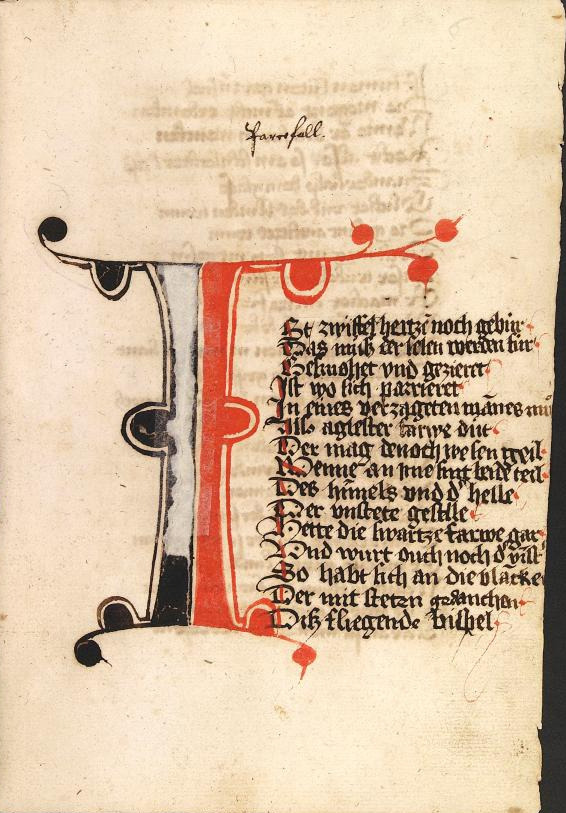 Parcifall.
I
St zwiffel hertzē noch gebur
Das muß der selen werden sur
Gesmohet vnd gezieret
Ist wo sich parrieret
In eines verzageten mānes
Alß aglester farwe dut
Der mag denoch wesen geil
Wenne an yme sint beide teil
Des hīmels vnd d' helle
Der vnstete geselle
Hette die swartze farwe gar
Vnd wurt ouch noch d'
So habt sich an die blancke
Der mit steten gedancken
Diß fliegende bispel